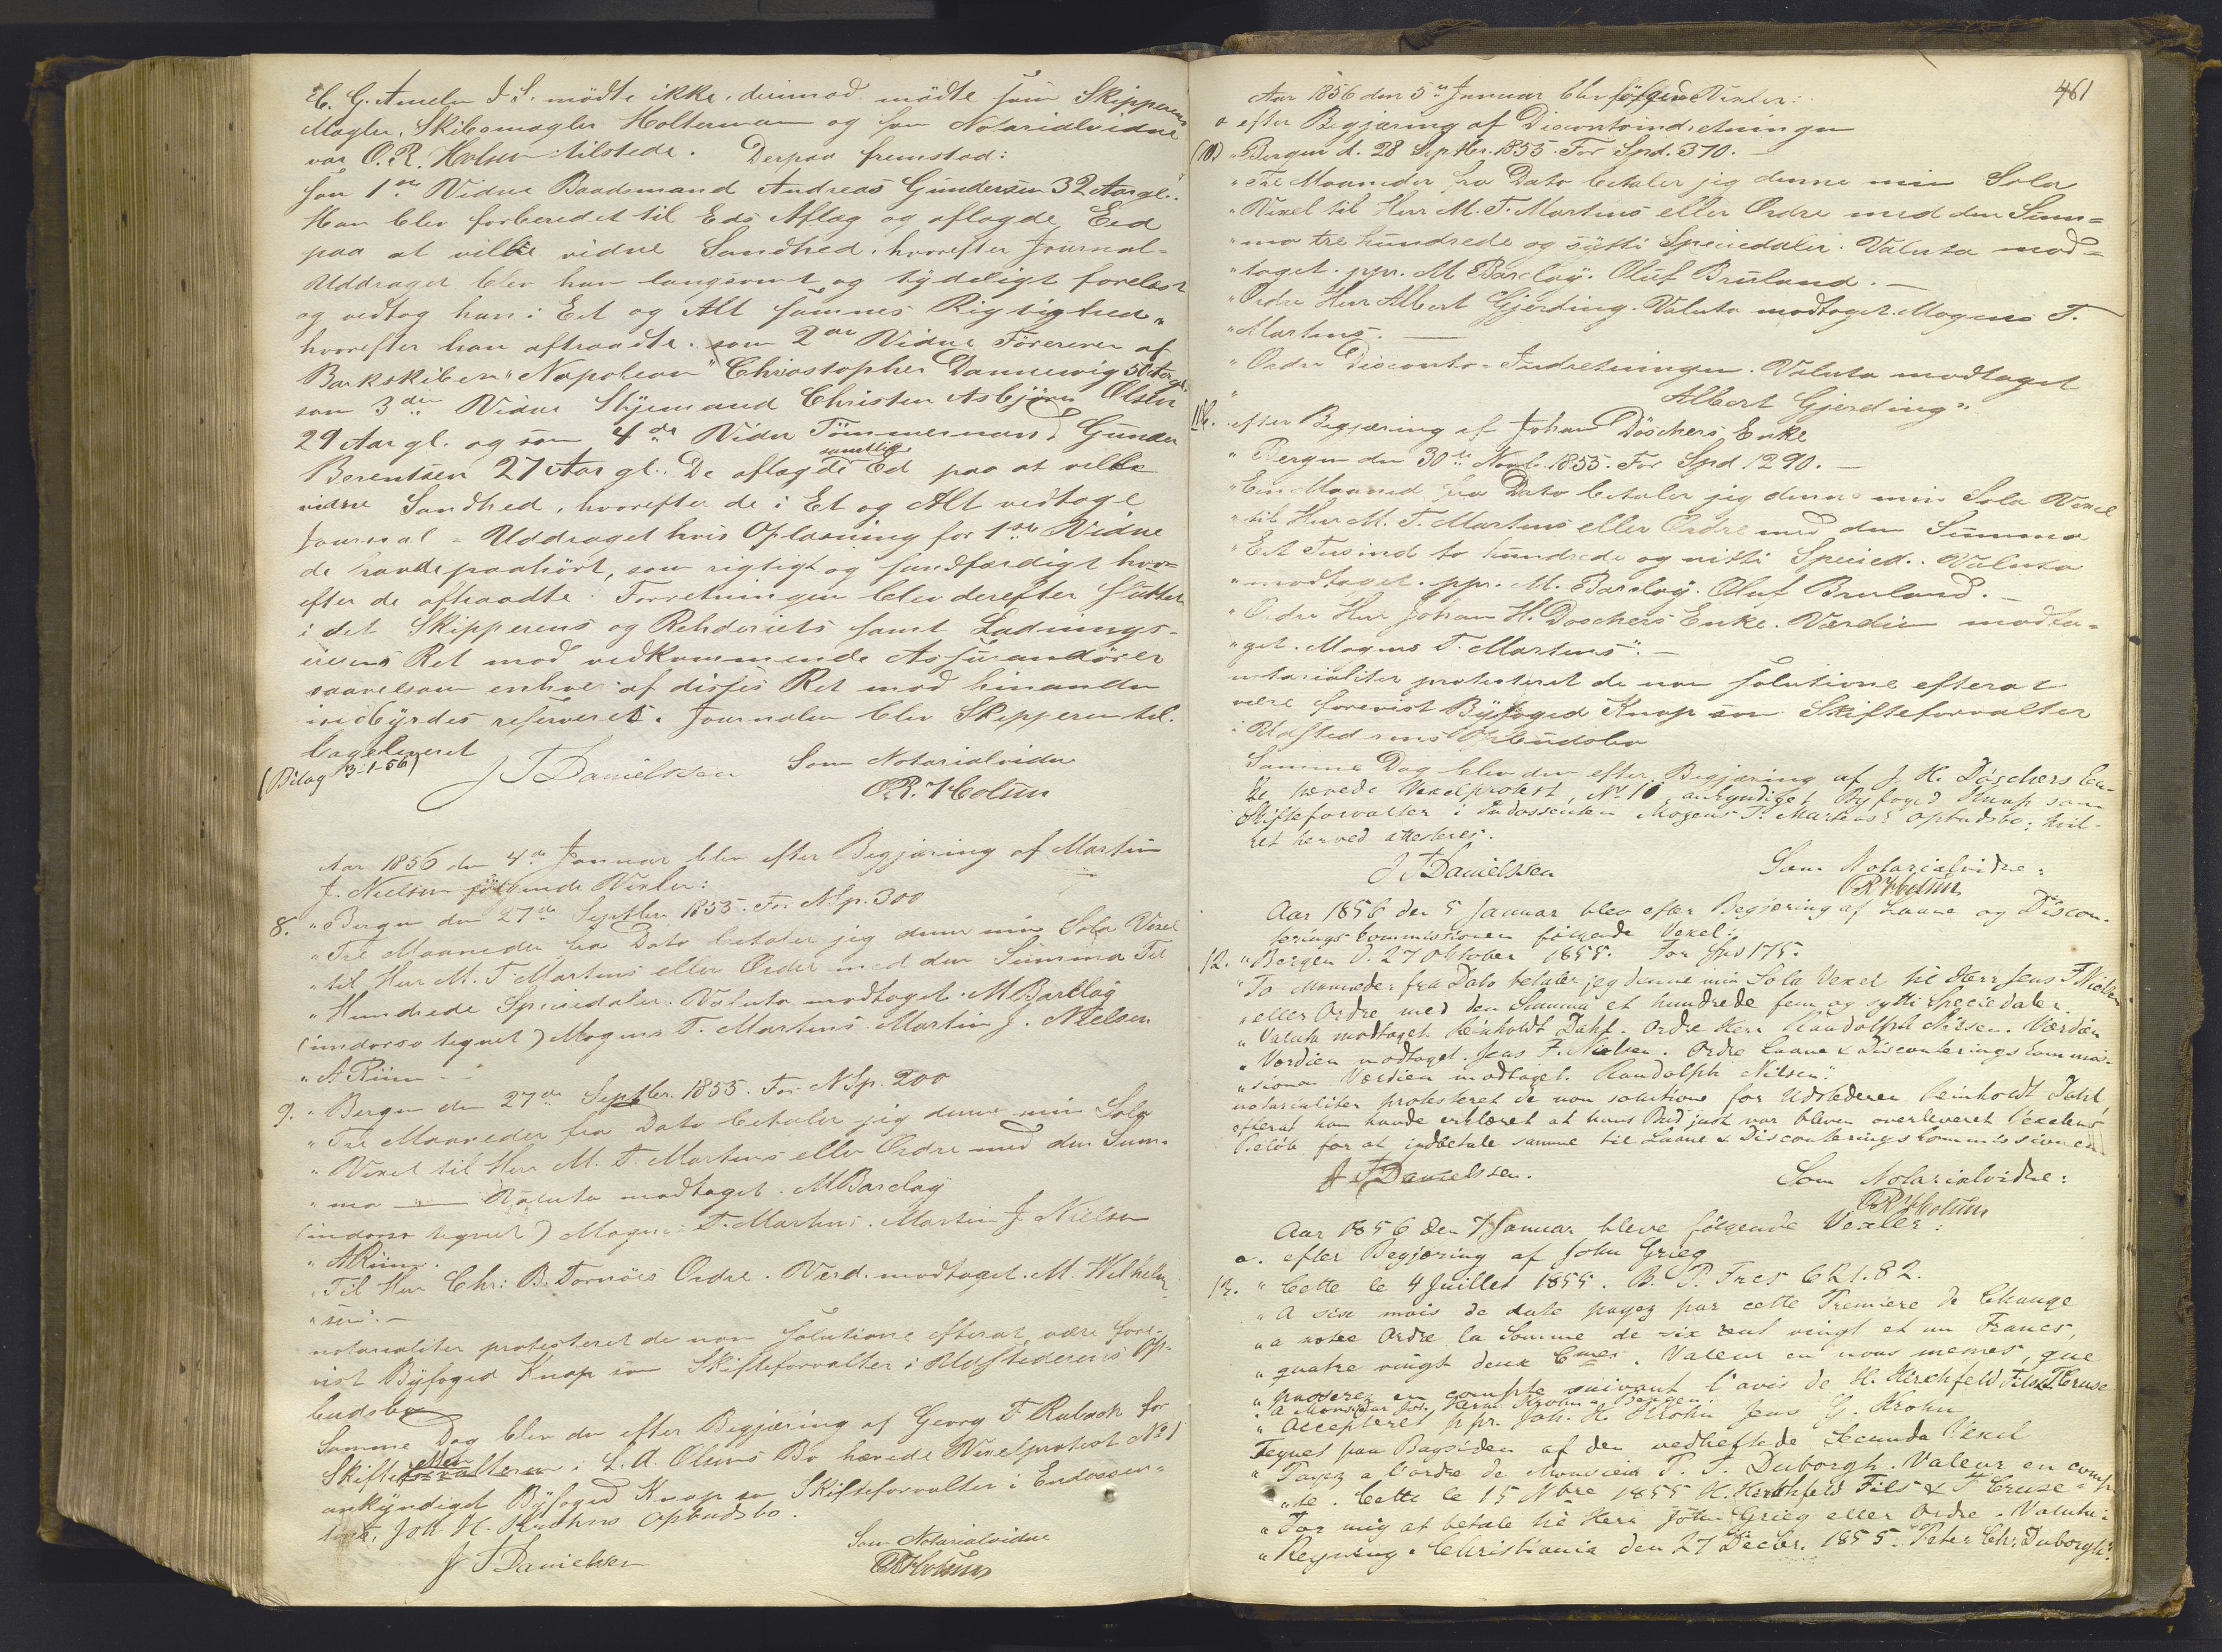 C. G. Ameln I. S. mödte ikke, derimod mödte som Skipperens
Mægler, Skibsmægler Holterman og som Notarialvidne
var O. R. Holum tilstede. Derpaa fremstod:
som 1ste Vidne Baadsmand Andreas Gundersen 32 Aar gl..
Han blev forberedet til Eds Aflæg og aflagde Eed
paa at ville vidne Sandhed, hvorefter Journal-
Uddraget blev ham langsomt og tydeligt forelæst
og vedtog han i Eet og Alt sammes Rigtighed,
hvorefter han aftraadte. som 2det Vidne Föreren af
Barkskibet "Napoleon" Christopher Dannevig 50 Aar gl.
som 3die Vidne Styrmand Christen Asbjörn Olsen
29 Aar gl. og som 4de Vidne Tömmermand Gunder
Berentsen 27 Aar gl.. De aflagde samtlige Ed paa at ville
vidne Sandhed, hvorefter de i Et og Alt vedtoge
Journal-Uddraget hvis Oplæsning for 1ste Vidne
de havde paahört, som rigtigt og sandfærdigt hvor-
efter de aftraadte. Forretningen blev derefter sluttet
i det Skipperens og Rehderiets samt Ladnings-
eierens Ret mod vedkommende Assurandörer
saavelsom enhver af disses Ret mod hinanden
indbyrdes reserveret. Journalen blev Skipperen til-
bageleveret
(Bilag 3-1-56)
J T Danielssen Som Notarialvidne
O.R. Holum
Aar 1856 den 4de Januar blev efter Begjæring af Martin
J. Nielsen fölgende Vexler:
8. "Bergen den 27de Septbr. 1855. For N. Sp. 300
"Tre Maaneder fra Dato betaler jeg denne min Sola Vexel
"til Herr M. T. Martens eller Ordre med den Summa Tre
"Hundrede Speciedaler. Valuta modtaget. M Barclay
(indorso tegnet) Mogens T. Martens. Martin J. Nielsen
"A Riim"
9. "Bergen den 27de Septbr. 1855. For N Sp. 200
"Tre Maaneder fra Dato betaler jeg denne min Sola
"Vexel til Herr M. T. Martens eller Ordre med den Sum-
"ma — Valuta modtaget. M Barclay
(indorso tegnet) Mogens T. Martens. Martin J Nielsen
"A Riim.
"Til Herr Chr: B. Tornöes Ordre. Værd. modtaget. M. Wilhelm
"sen".—
notarialiter protesteret de non solutione efterat være fore-
vist Byfoged Knap som Skifteforvalter i Udstederens Op-
budsbo
Samme Dag blev der efter Begjæring af Georg F Rubach for
Skifteforvalteren i L. A. Olsens Bo hævede Vexelprotest No 1
ankyndiget Byfoged Knap som Skifteforvalter i Endossen-
tens, Joh H. Krohns Opbudsbo.
J T Danielssen Som Notarialvidne
O R Holum
461
Aar 1856 den 5te Januar blev fölgende Vexler:
a efter Begjæring af Discontoindretningen
(10) "Bergen d. 28 Septbr. 1855. For Spd. 370.—
"Tre Maaneder fra Dato betaler jeg denne min Sola
"Vexel til Herr M. T. Martens eller Ordre med den Sum=
"ma tre hundrede og sytti Speciedaler. Valuta mod=
"taget. ppr. M Barclay. Oluf Bruland.—
"Ordre Herr Albert Gjerding. Valuta modtaget. Mogens T.
"Martens.—
"Ordre Disconto-Indretningen. Valuta modtaget
Albert Gjerding".
11 b. efter Begjæring af Johan Döschers Enke
"Bergen den 30te Novb. 1855. For Spd 1290.—
"Een Maaned fra Dato betaler jeg denne min Sola Vexel
"til Herr M. T. Martens eller Ordre med den Summa
"Eet Tusind to hundrede og nitti Specied.. Valuta
"modtaget. ppr. M. Barclay. Oluf Bruland.—
"Ordre Herr Johan H. Doschers Enke. Værdien modta-
"get. Mogens T. Martens".—
notarialiter protesteret de non solutione efterat
være forevist Byfoged Knap som Skifteforvalter
i Udstederens Opbudsbo
Samme Dag blev der efter Begjæring af J. H. Döschers En-
ke hævede Vexelprotest, No 10, ankyndiget Byfoged Knap som
Skifteforvalter i Indossenten Mogens T. Martens' Opbudsbo; hvil-
ket herved attesteres.
J T Danielssen Som Notarialvidne:
O R Holum
Aar 1856 den 5 Januar blev efter Begjæring af Laane og Discon-
terings Commissionen fölgende Vexel:
12. "Bergen d. 27 Oktober 1855. For Spd 175.
"To Maaneder fra Dato betaler jeg denne min Sola Vexel til Herr Jens F Nielsen
"eller Ordre med den Summa et hundrede fem og sytti Speciedaler.
"Valuta modtaget. Reinholdt Dahl. Ordre Herr Randolph Nilsen. Værdien
"Værdien modtaget. Jens F. Nielsen. Ordre Laane & Disconterings Commis-
"sionen Værdien modtaget. Randolph Nilsen".
notarialiter protesteret de non solutione for Udstederen Reinholdt Dahl,
efterat han havde erklæret at hans Bud just var bleven overleveret Vexelens
Belöb for at indbetale samme til Laane & Disconteringskommissionen
J T Danielssen. Som Notarialvidne:
O R Holum
Aar 1856 den 7 Januar bleve fölgende Vexler:
a. efter Begjæring af John Grieg
13. "Cette le 4 Juillet 1855. B. P. Frcs 621.82.
"A six mois de date payez par cette Premiere de Change
"a notre Ordre la Somme de six cent vingt et un Francs,
"quatre vingt deux Cmes. Valeur en nous memes, que
"passerez en compte suivant l'avis de H. Hirchfeld Fils & F Cruse
"A Monsieur Joh. Herm. Krohn Bergen.
"Accepteret ppr. Joh. H. Krohn Jens G. Krohn
Tegnet paa Bagsiden af den vedheftede Secunda Vexel
"Payez a l'ordre de Monsieur P. T. Duborgh. Valeur en comp-
"te. Cette le 15 Nbre 1855 H. Hirchfeld Fils & F Cruse
"For mig at betale til Herr John Grieg eller Ordre. Valuta i
"Regning. Christiania den 27 Decbr. 1855. Peter Chr. Duborgh".